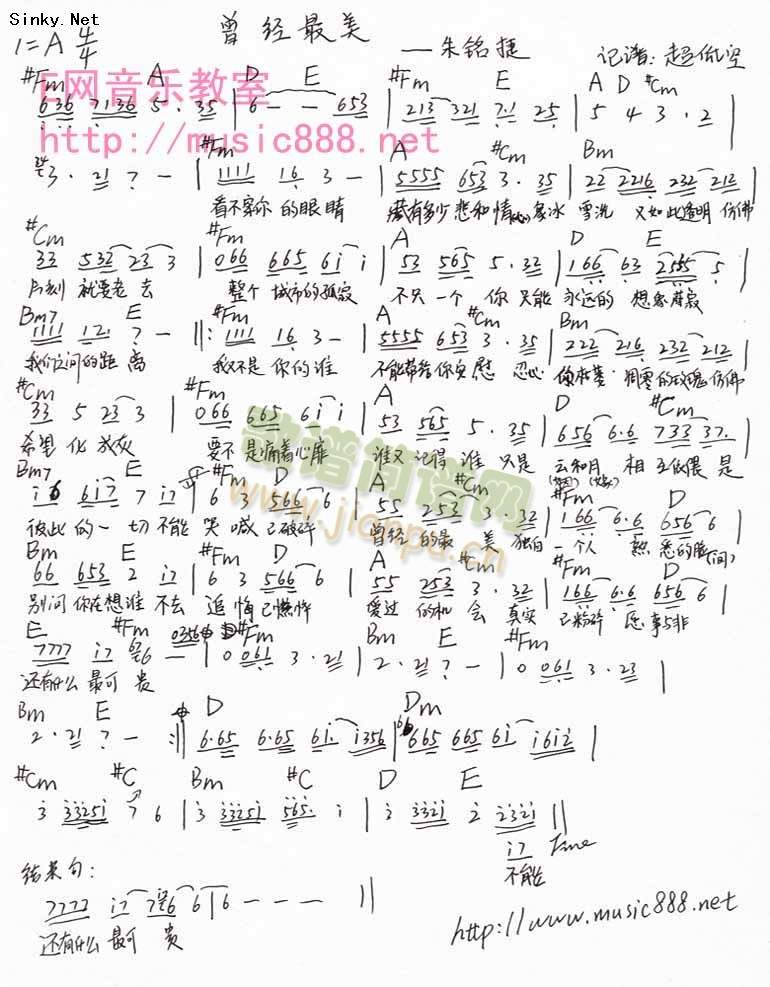 Sinky.Net
曾经最美
1=A 4/4
——朱铭捷 记谱:超低空
E网音乐教室
http://music888.net
#Fm A D E #Fm E A D #Cm
636 7136 5· 35 | 6 - - 653 | 213 321 7·1 25 | 5 4 3 · 2 |
#Fm A #Cm Bm
3· 21 7 - | 1111 16 3 - | 5555 653 3· 35 | 22 2216 232 212 |
看不穿你 的眼睛 藏有多少 悲和情 冰雪洗 又如此透明 仿佛
#Cm #Fm A D E
33 532 23 3 | 066 665 6i i | 53 565 5· 32 | 166 63 2555 5 |
片刻 就要老去 整个 城市的孤寂 不只一个 你 只能 永远的 想象
Bm7 E #Fm A #Cm Bm
1111 121 7 - ‖: 1111 16 3 - | 5555 653 3· 35 | 222 216 232 212 |
我们之间的距离 我又不是 你的谁 不能带给你安慰 忍心 凋零的玫瑰 仿佛
#Cm #Fm A D #Cm
33 5 23 3 | 066 665 6i i | 53 565 5· 35 | 656 6·6 733 37· |
希望 化成灰 要不是痛着心扉 谁又记得谁 只是 云和月 相互依偎 是
Bm7 E #Fm D A #Cm #Fm D
i6 6i7 7 i7 | 6 3 566 6 | 55 253 3· 32 | 166 6·6 656 6 |
彼此的一切不能 哭喊 已破碎 曾经 的最美 独自 一个人 熟悉的脸(间)
Bm E #Fm D A #Cm #Fm D
66 653 2 i7 | 6 3 566 6 | 55 253 3· 32 | 166 6·6 656 6 |
别问 你在想谁 不去 追悔 已憔悴 爱过 的机会 真实 已粉碎 愿事与非
E #Fm #Fm Bm E #Fm
7777 i7 6 - | 0 061 3· 21 | 2· 21 7 - | 0 061 3· 23 |
还有什么 最可贵
Bm E D Dm
2· 21 7 - :‖ 6·65 6·65 6i· i356 | 665 665 6i i6i2 |
#Cm #C Bm #C D E
3 33251 7 6 | 3 33251 565· i | 2 3321 2 2321 ‖
i7 Fine
不能
结束句:
7777 i7 76 6 | 6 - - - ‖
还有什么 最可 贵
http://www.music888.net
歌谱简谱网
www.jianpu.cn